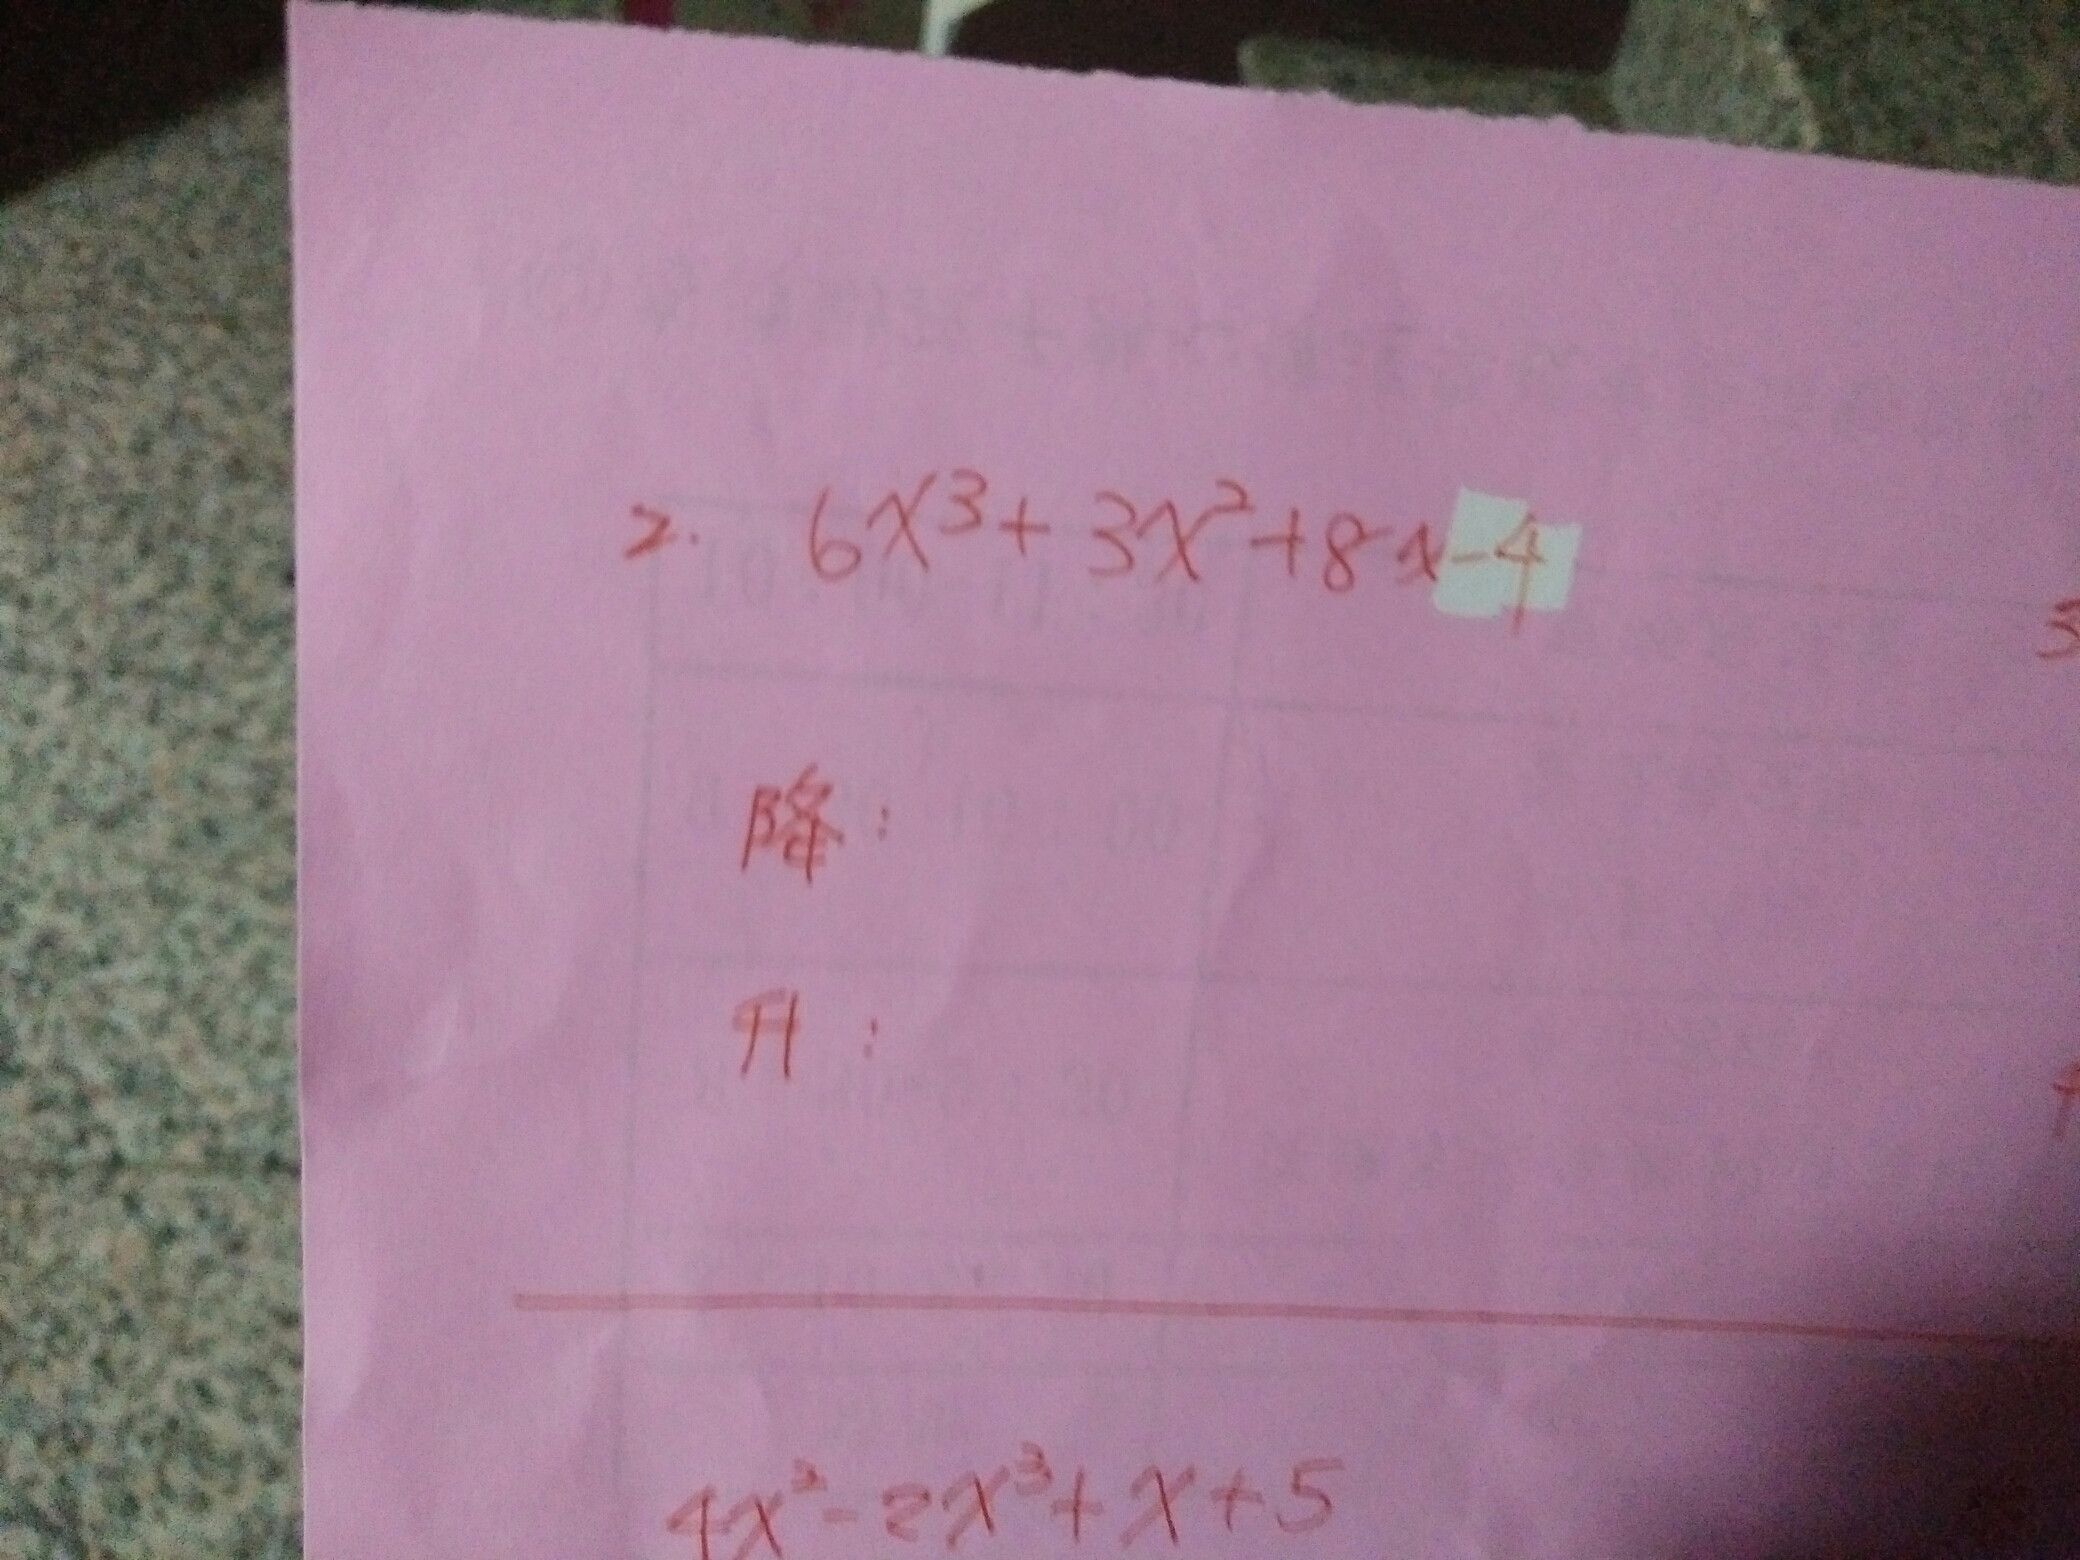 2. 6x³+3x²+8x-4
降:
升:
4x²-2x³+x+5